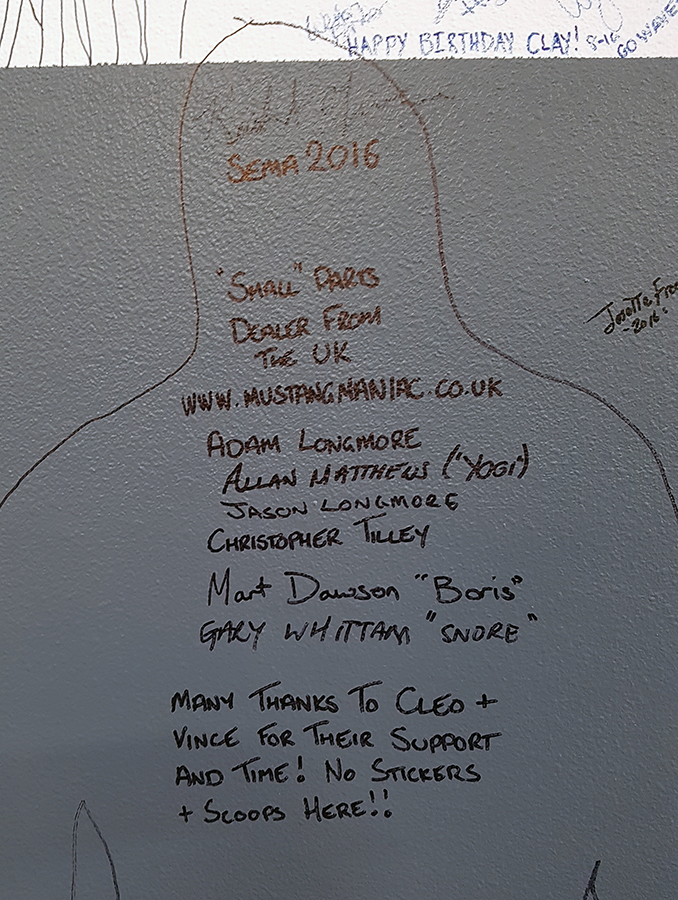 HAPPY BIRTHDAY CLAY! 8-16
GO WAVE
SEMA 2016
"SMALL" PARTS
DEALER FROM
THE UK
WWW.MUSTANGMANIAC.CO.UK
ADAM LONGMORE
ALLAN MATTHEWS ('YOGI')
JASON LONGMORE
CHRISTOPHER TILLEY
Mart Dawson "Boris"
GARY WHITTAM "SNORE"
MANY THANKS TO CLEO +
VINCE FOR THEIR SUPPORT
AND TIME! NO STICKERS
+ SCOOPS HERE!!
-2016-